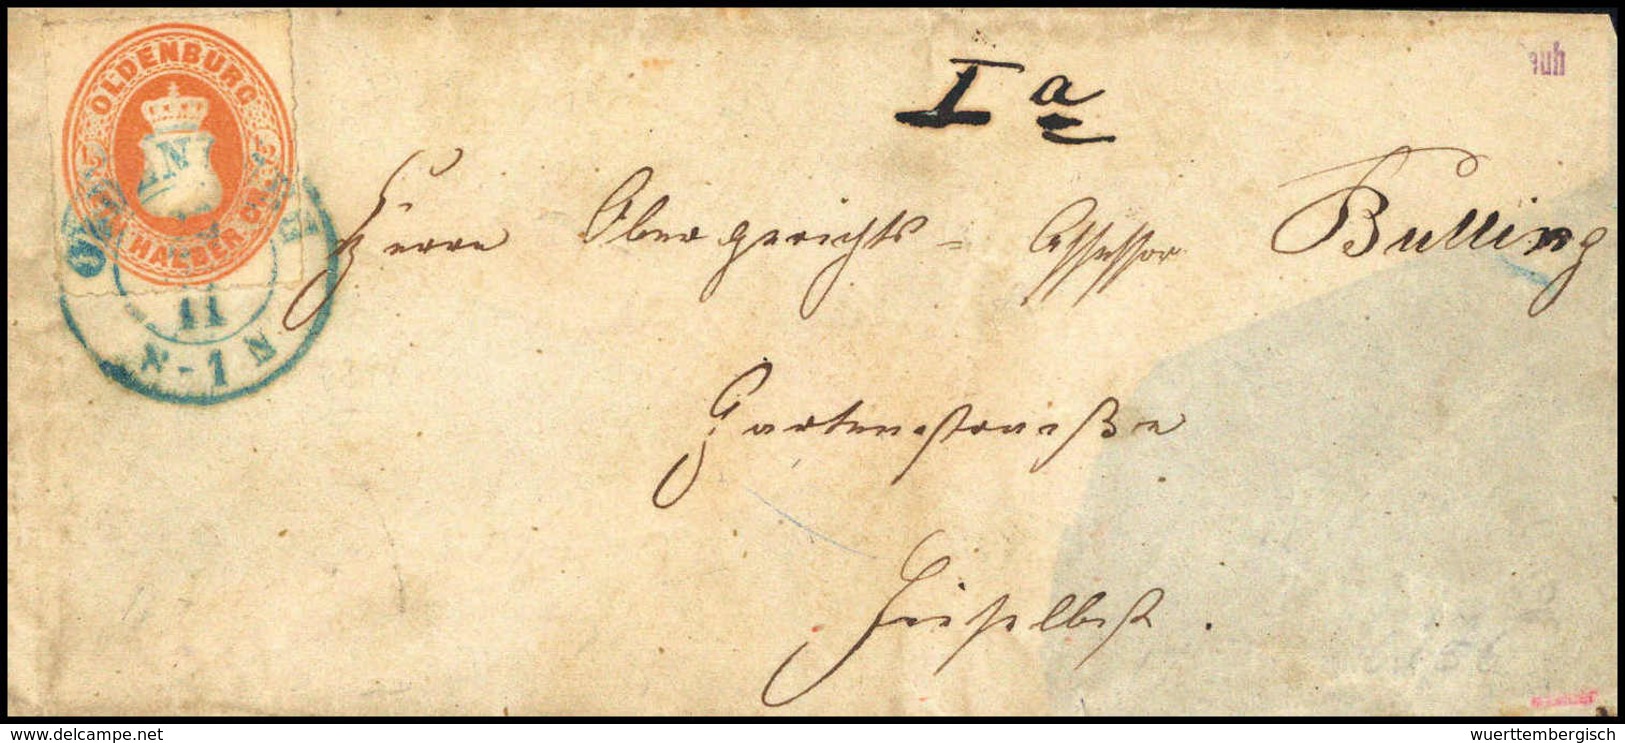 OLDENBURG
EIN HALBER GR.
OLDENBURG
11
N-1N
I a
Herrn Obergerichts = Assessor Bulling
Gartenstraße
Hieselbst.
delcampe.net
wuerttembergisch